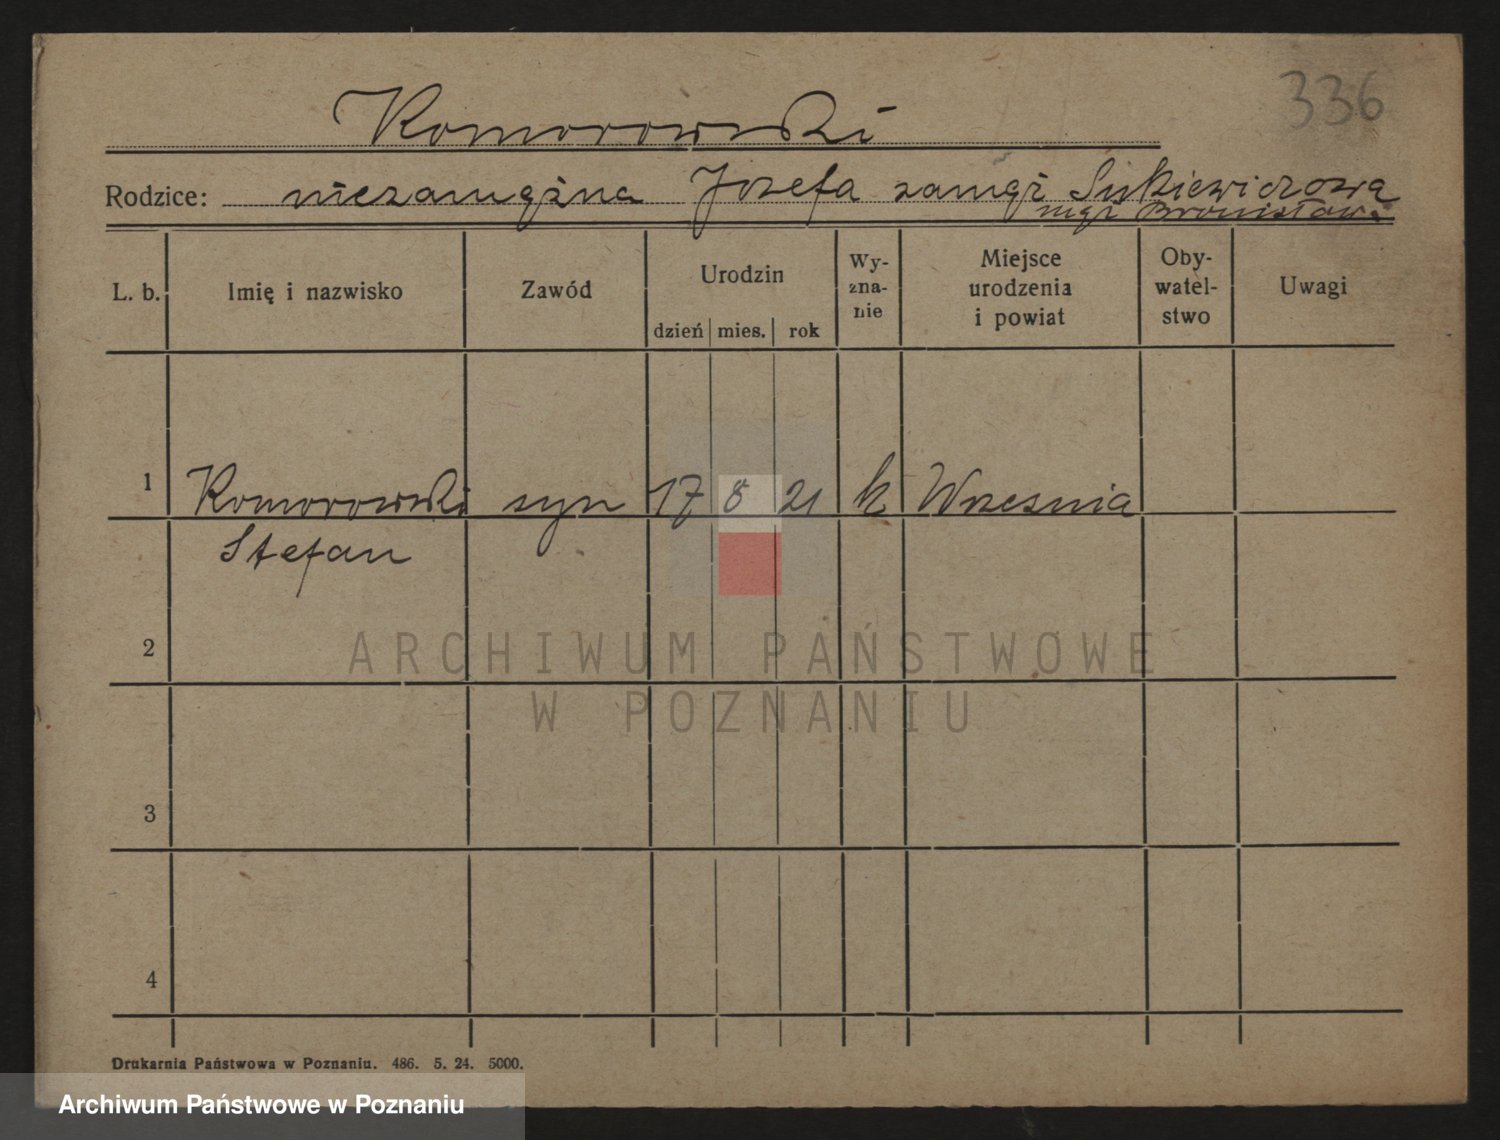 336
Komorowski
Rodzice: niezamężna Józefa zamęż Sukiewiczowa
męż Bronisław
L. b. Imię i nazwisko Zawód Urodzin dzień mies. rok Wy- zna- nie Miejsce urodzenia i powiat Oby- watel- stwo Uwagi
1 Komorowski syn 17 8 21 k Wrzesnia
Stefan
2
ARCHIWUM PAŃSTWOWE
W POZNANIU
3
4
Drukarnia Państwowa w Poznaniu. 486. 5. 24. 5000.
Archiwum Państwowe w Poznaniu